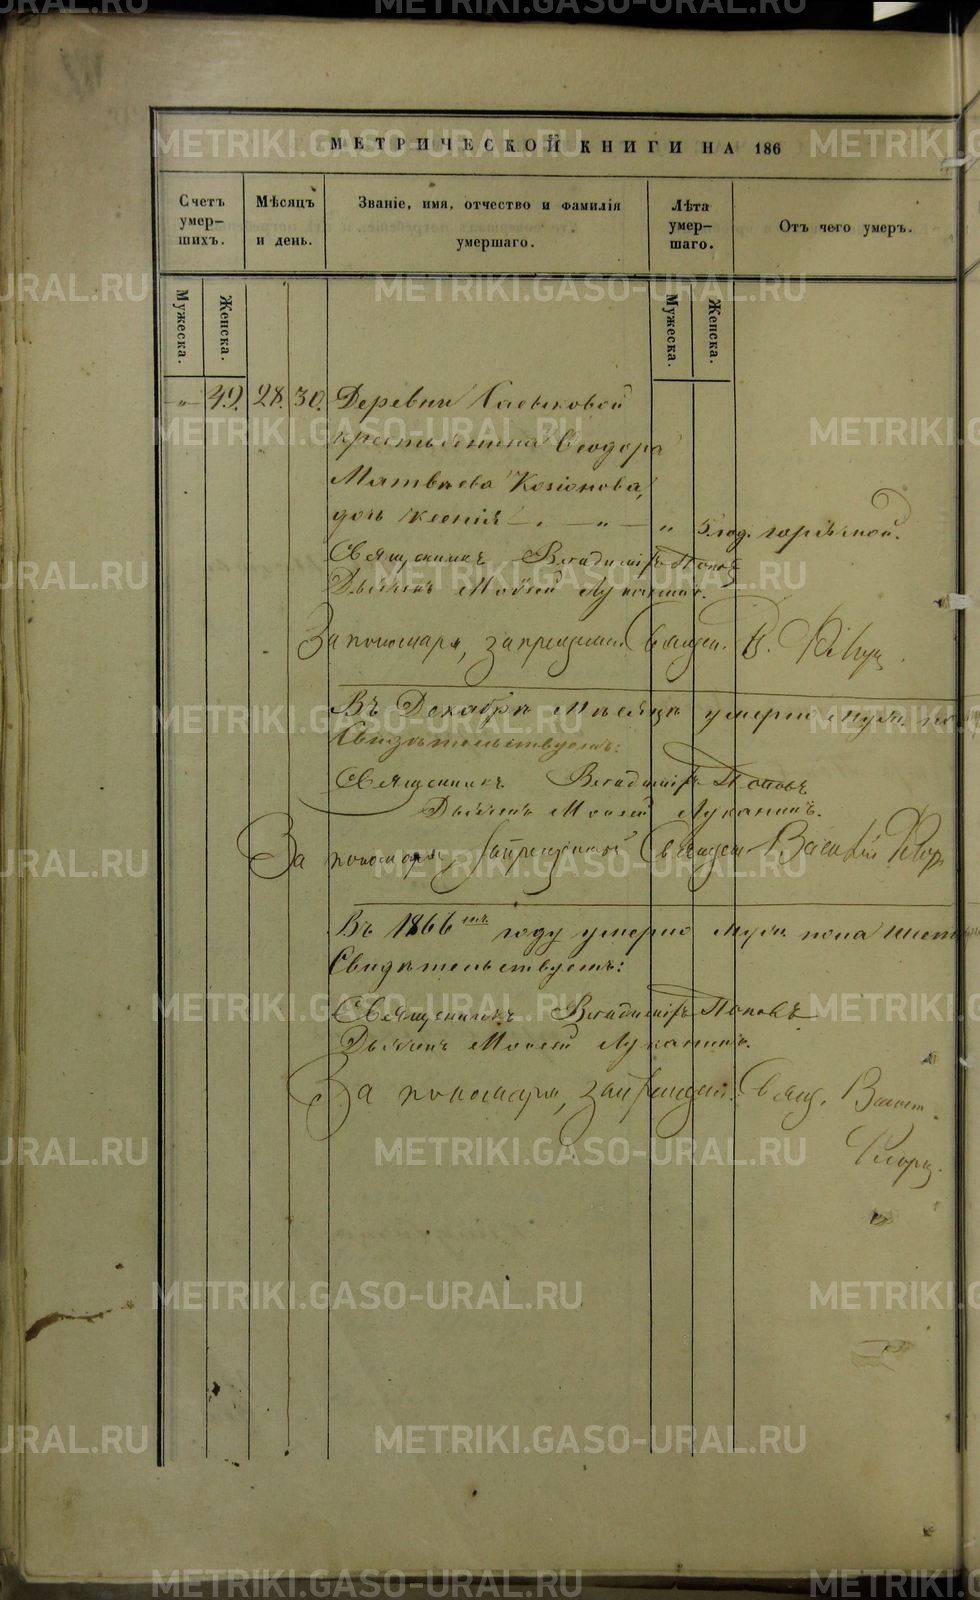 МЕТРИЧЕСКОЙ КНИГИ НА 186
Счетъ умер-шихъ.
Мѣсяцъ и день.
Званіе, имя, отчество и фамилія умершаго.
Лѣта умер-шаго.
Отъ чего умеръ.
Мужеска.
Женска.
Мужеска.
Женска.
„ 49. 28. 30. Деревни
крестьянина Ѳеодора
Матвѣева Козіонова,
дочь Ксенія — „ — „ — „ 5 год. горячкой.
Священникъ Владиміръ Поповъ
Дьячекъ Моѵсей Луканинъ.
За пономаря, запрещен. Священ. В.
Въ Декабрѣ мѣсяцѣ умерло муж. по
Свидѣтельствуетъ:
Священникъ Владиміръ Поповъ
Дьячекъ Моѵсей Луканинъ.
За пономаря, запрещенный Священ Василій
Въ 1866мъ году умерло муж. пола шест
Свидѣтельствуетъ:
Священникъ Владиміръ Поповъ
Дьячекъ Моѵсей Луканинъ.
За пономаря, запрещен. Свящ.
METRIKI.GASO-URAL.RU